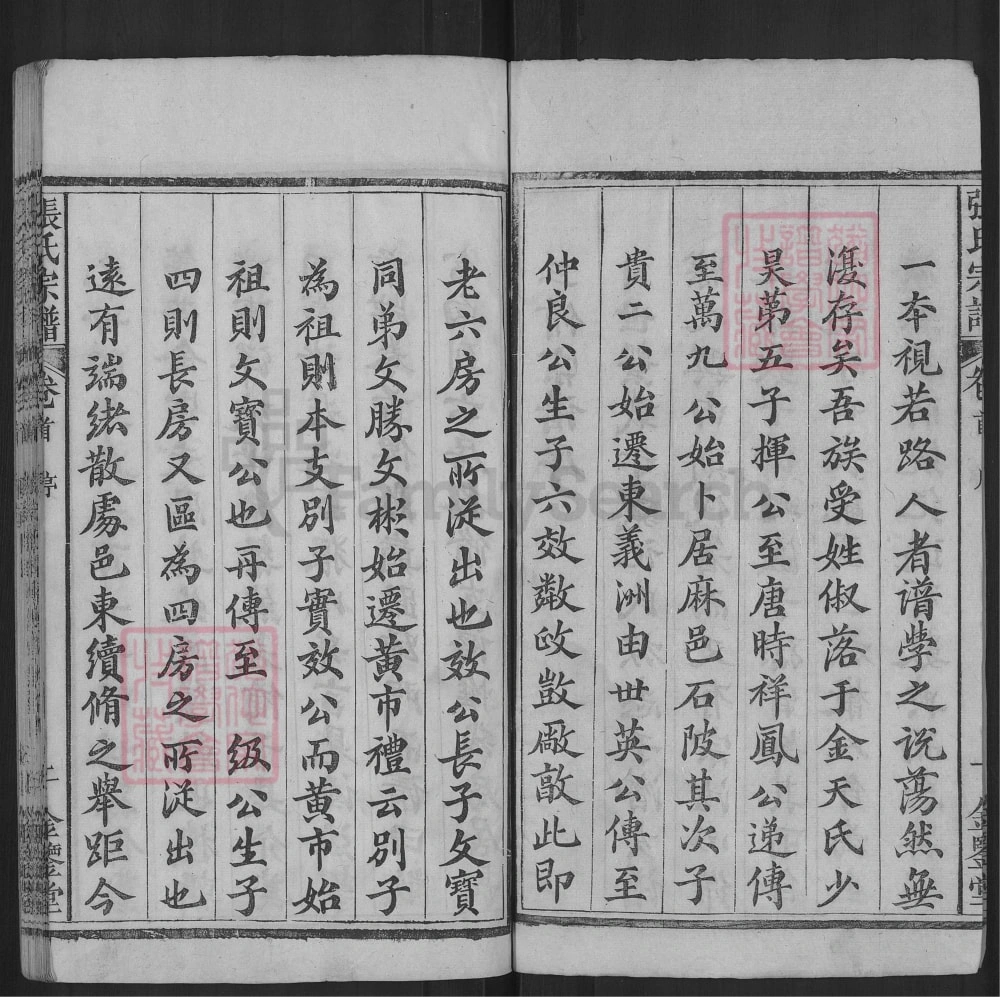 張氏宗譜 卷首 序 一 金鑒堂
一夲視若路人者譜學之说蕩然無
復存矣吾族受姓俶落于金天氏少
昊苐五子揮公至唐時祥鳳公递傳
至萬九公始卜居麻邑石陂其次子
貴二公始遷東義洲由世英公傳至
仲良公生子六效數政敳厰敲此即
老六房之所従出也效公長子文寶
同弟文勝文彬始遷黄市禮云别子
為祖則本支别子實效公而黄市始
祖則文寶公也再傳至級公生子
四則長房又區為四房之所従出也
遠有端緒散處邑東續脩之舉距今
張氏宗譜 卷首 序 二 金鑒堂
FamilySearch